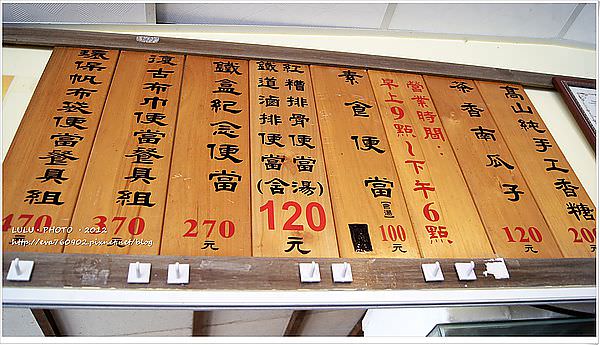 高山純手工香糖
200
茶香南瓜子
120元
營業時間：
早上9點~下午6點
素食便當(含湯)
100元
紅糟排骨便當
鐵道滷排便當(含湯)
120元
鐵盒紀念便當
270元
復古布巾便當餐具組
370元
環保帆布袋便當餐具組
470元
LULU‧PHOTO‧2012
http://eva760902.pixnet.net/blog